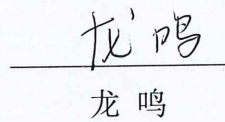 龙鸣
龙 鸣